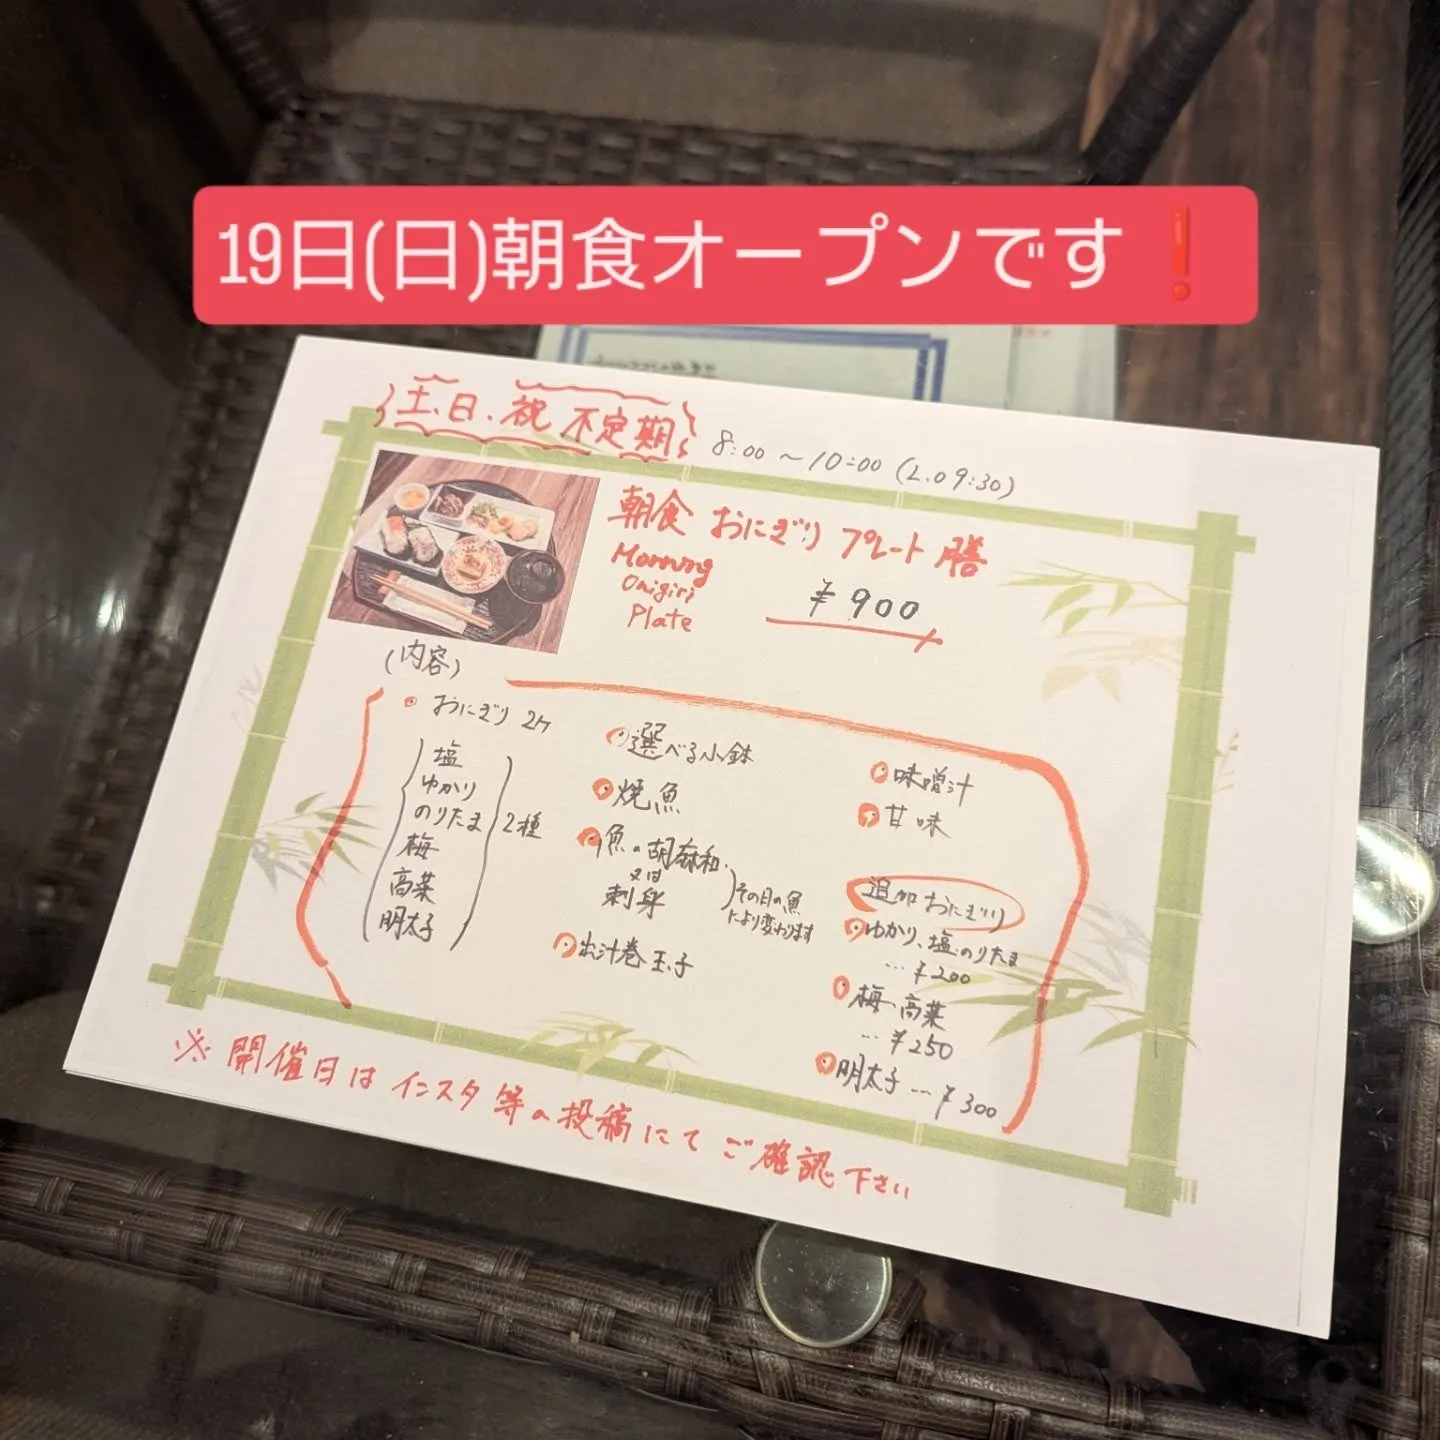 19日(日)朝食オープンです❗
土、日、祝 不定期
8:00 〜 10:00 (L.O 9:30)
朝食 おにぎり プレート 膳
Morning
Onigiri
Plate
¥900
(内容)
おにぎり 2ケ
塩
ゆかり
のりたま
梅
高菜
明太子
2種
選べる小鉢
焼魚
魚の胡麻和
又は
刺身
その日の魚
により変わります
出汁巻玉子
味噌汁
甘味
追加おにぎり
ゆかり、塩、のりたま
… ¥200
梅、高菜
… ¥250
明太子 … ¥300
※ 開催日は インスタ 等の投稿にて ご確認下さい